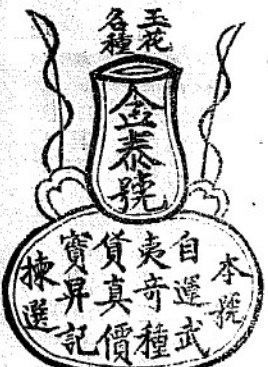 玉花
各種
金泰號
本號
自運武
夷奇種
貨真價
寶昇記
揀選